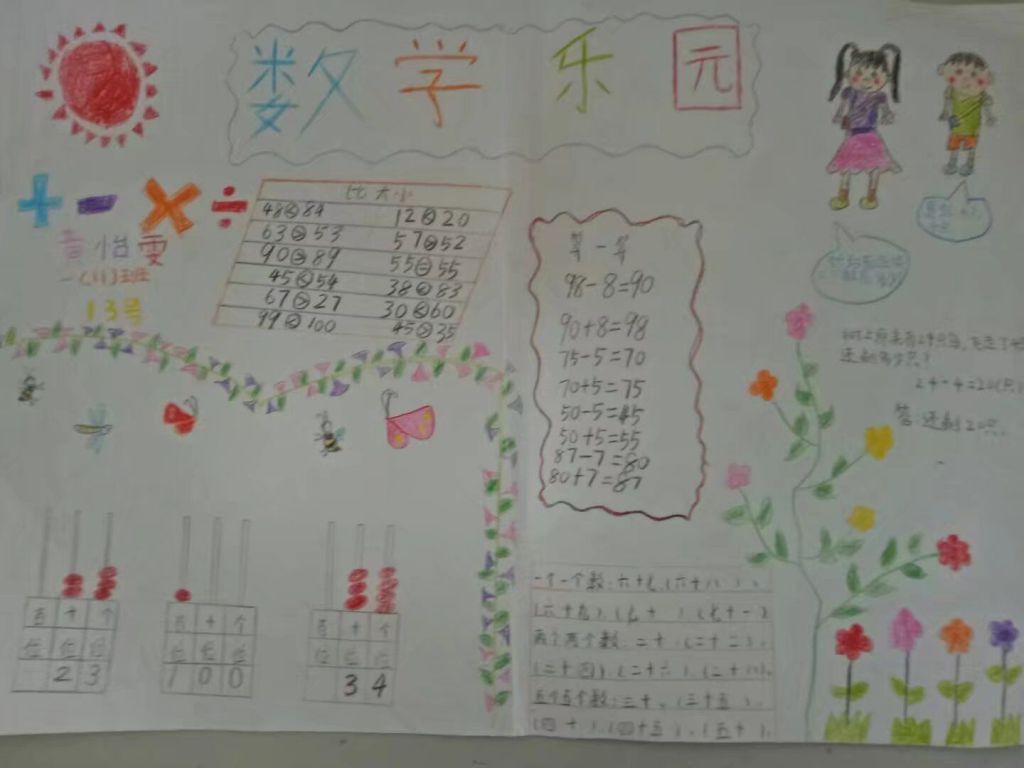 数学乐园
+ - × ÷
黄怡雯
一(11)班
13号
比大小
48<84 12<20
63>53 57>52
90>89 55=55
45<54 38<83
67>27 30<60
99<100 45>35
算一算
98-8=90
90+8=98
75-5=70
70+5=75
50-5=45
50+5=55
87-7=80
80+7=87
树上原来有24只鸟,飞走了
还剩多少只?
24-4=20(只)
答:还剩20只.
百 十 个
位 位 位
2 3
百 十 个
位 位 位
1 0 0
百 十 个
位 位 位
3 4
一个一个数:六十七,(六十八),
(六十九),(七十),(七十一)
两个两个数:二十,(二十二),
(二十四),(二十六),(二十八),
五个五个数:三十,(三十五),
(四十),(四十五),(五十),